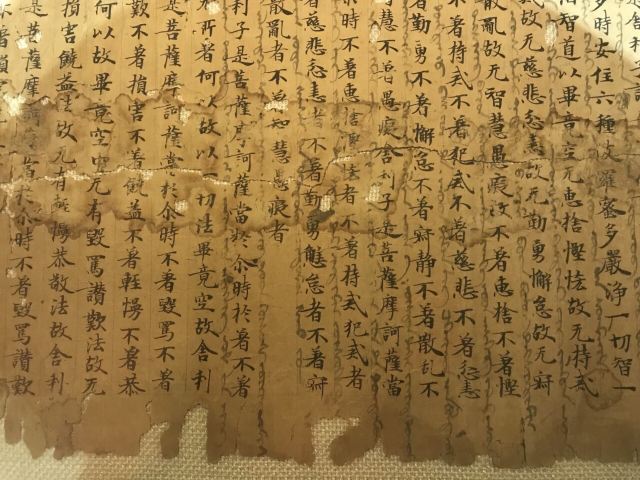 多時安住六種波羅蜜多嚴淨一切智一
切智道以畢竟空无惠捨慳悋故无持戒
戒故无慈悲忿恚故无勤勇懈怠故无寂
散亂故无智慧愚癡故不著惠捨不著慳
不著持戒不著犯戒不著慈悲不著忿恚
著勤勇不著懈怠不著寂靜不著散乱不
智慧不著愚癡舍利子是菩薩摩訶薩當
尒時不著惠捨慳悋者不著持戒犯戒者
著慈悲忿恚者不著勤勇懈怠者不著寂
散亂者不著智慧愚癡者
利子是菩薩摩訶薩當於尒時於著不著
无所著何以故以一切法畢竟空故舍利
是菩薩摩訶薩當於尒時不著毀罵不著
歎不著損害不著饒益不著輕慢不著恭
何以故畢竟空中无有毀罵讚歎法故无
損害饒益法故无有輕慢恭敬法故舍利
是菩薩摩訶薩當於尒時不著毀罵讚歎